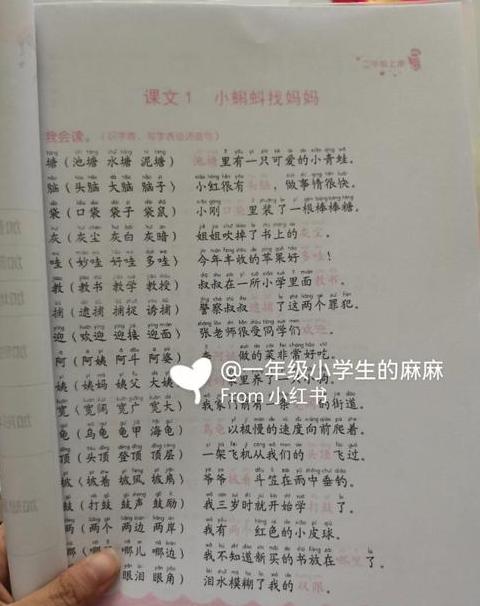 二年级上册
课文1 小蝌蚪找妈妈
我会读。(识字表、写字表组词造句)
塘(池塘 水塘 泥塘) 池塘里有一只可爱的小青蛙。
脑(头脑 大脑 脑子) 小红很有头脑,做事情很快。
袋(口袋 袋子 袋鼠) 小刚口袋里装了一根棒棒糖。
灰(灰尘 灰白 灰暗) 姐姐吹掉了书上的灰尘。
哇(妙哇 好哇 多哇) 今年丰收的苹果好多哇!
教(教书 教学 教授) 叔叔在一所小学里面教书。
捕(逮捕 捕捉 诱捕) 警察叔叔逮捕了这两个罪犯。
迎(欢迎 迎接 迎面) 张老师很受同学们欢迎。
阿(阿姨 阿斗 阿婆) 阿姨做的菜非常好吃。
姨(姨妈 姨父 大姨)
宽(宽阔 宽广 宽大) 我家门前有一条宽阔的街道。
龟(乌龟 龟甲 海龟) 乌龟以极慢的速度向前爬着。
顶(头顶 登顶 顶层) 一架飞机从我们的头顶飞过。
披(披着 披风 披肩) 爷爷披着斗笠在雨中垂钓。
鼓(打鼓 鼓声 鼓励) 我三岁时就开始学打鼓了。
两(两个 两边 两岸) 我有两个红色的小皮球。
哪(哪 哪儿 哪边) 我不知道新买的书放在哪里了。
眼泪 眼角) 泪水模糊了我的双眼。
@一年级小学生的麻麻
From 小红书